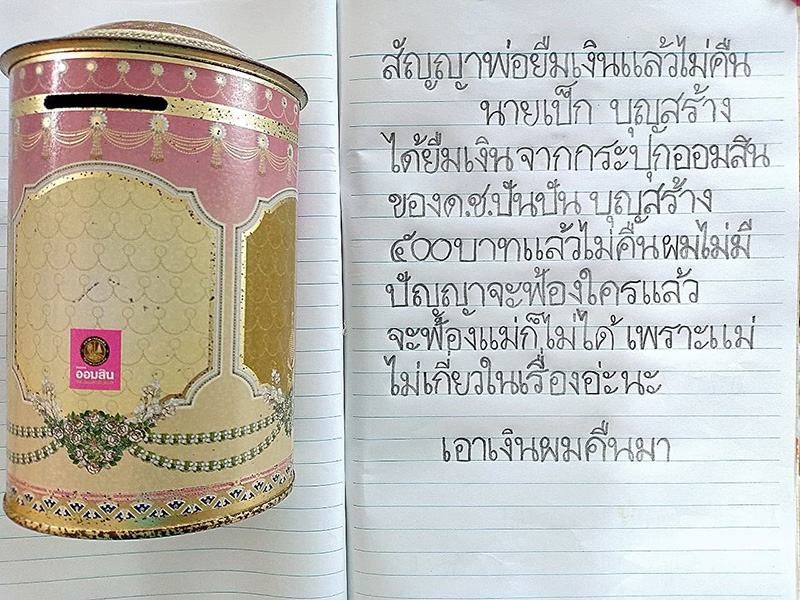 ออมสิน
สัญญาพ่อยืมเงินแล้วไม่คืน
นายเป็ก บุญสร้าง
ได้ยืมเงินจากกระปุกออมสิน
ของด.ช.ปันปัน บุญสร้าง
๕๐๐บาทแล้วไม่คืนผมไม่มี
ปัญญาจะฟ้องใครแล้ว
จะฟ้องแม่ก็ไม่ได้ เพราะแม่
ไม่เกี่ยวในเรื่องอ่ะนะ
เอาเงินผมคืนมา